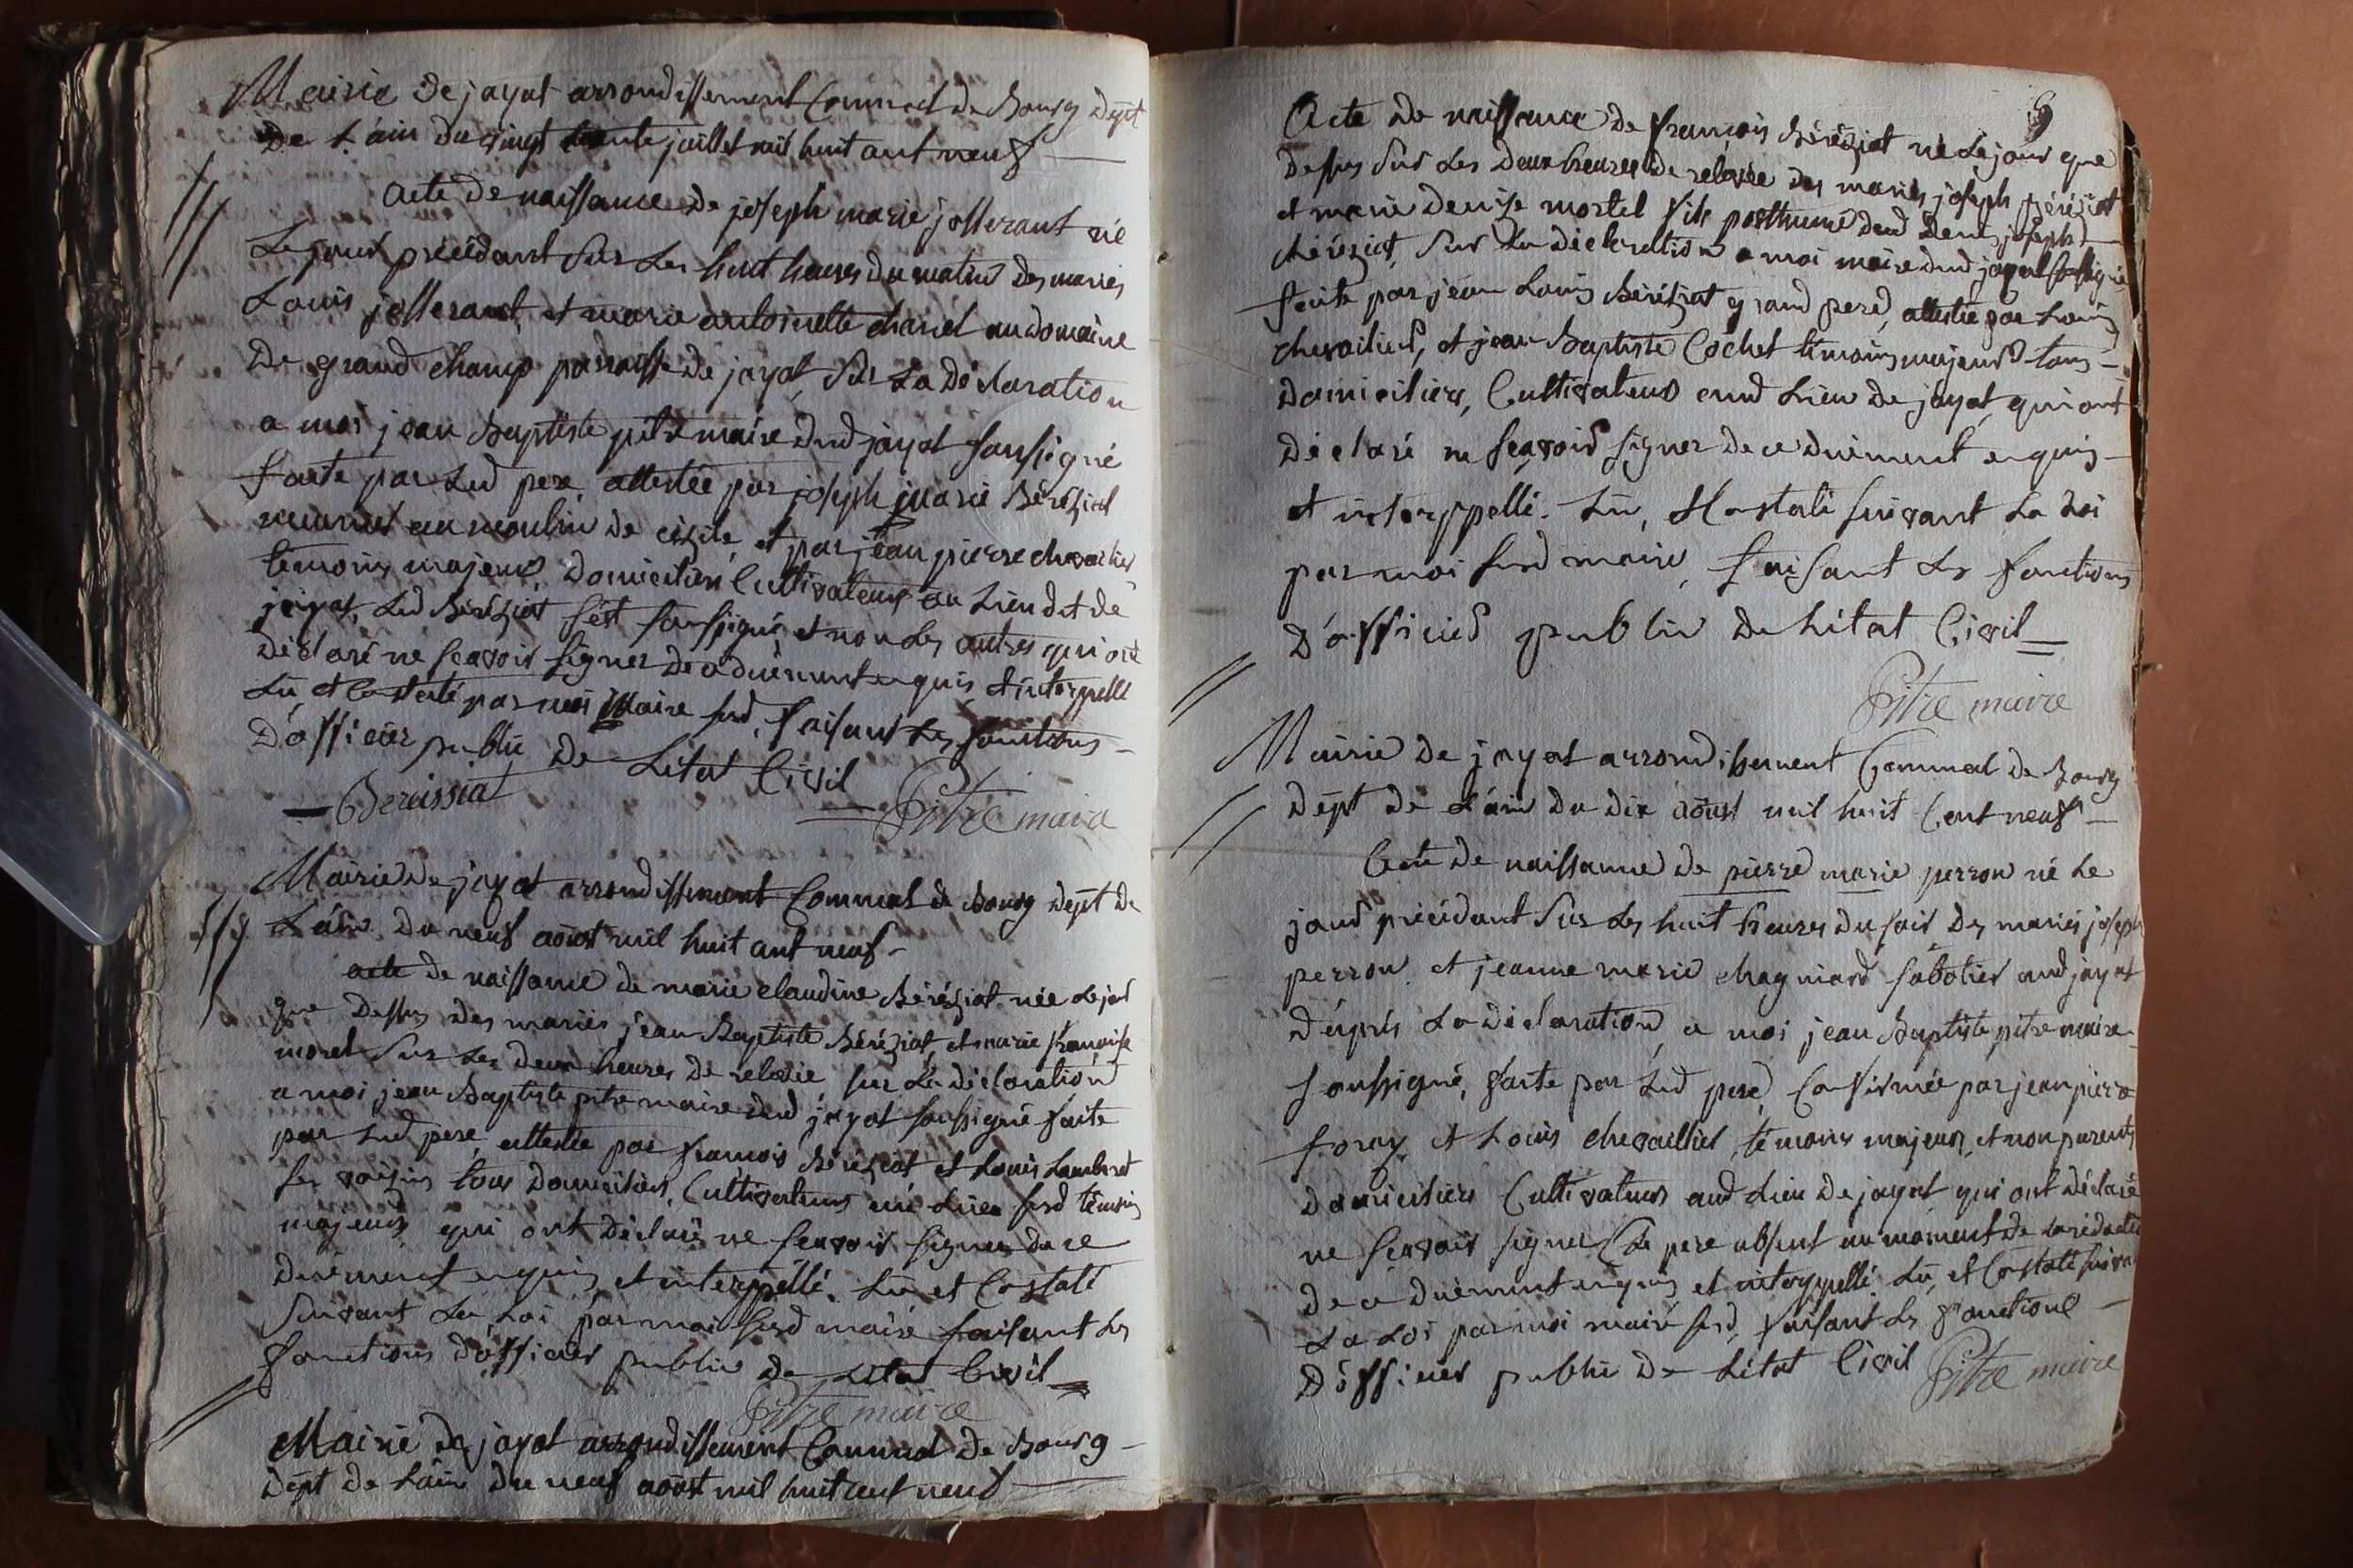 Mairie de jayat arrondissement Communal de Bourg dépt
de L'ain du vingt juillet mil huit cent neuf
acte de naissance de joseph marie josserant né
Le jour précédant sur les huit heures du matin des mariés
Louis josserant, et marie antoinette charel au domaine
de grand champ parroisse de jayat, sur La déclaration
a moi jean Baptiste pitre maire dud jayat soussigné
faite par Led pere, attestée par joseph marie Béréziat
meunier au moulin de et par jean pierre chevailier
témoins majeurs, domiciliés Cultivateurs au Lieu dit de
jayat, Led Béréziat s'est soussigné et non Les autres qui ont
déclaré ne sçavoir signer de ce duement enquis et interppellé
Lu, et Constaté par moi Maire susd, faisant Les fonctions
d'officier public de L'état Civil
Bereissiat Pitre maire
Mairie de jayat arrondissement Communal de Bourg dépt de
L'ain, du neuf aoüst mil huit cent neuf
acte de naissance de marie claudine Béréziat née le jour
que dessus des mariés jean Baptiste Béréziat, et marie françoise
morel sur Les deux heures de relevée, sur La déclaration
a moi jean Baptiste pitre maire dud jayat soussigné faite
par Led pere, attestée par françois Béréziat et Louis Lambert
ses voisins tous domiciliés, Cultivateurs lieu susd témoins
majeurs qui ont déclaré ne sçavoir signer de ce
duement enquis, et interppéllé. Lu et Constaté
suivant La Loi par moi susd maire faisant Les
fonctions d'officier public de L'état Civil
Pitre maire
Mairie de jayat arrondissement Communal de Bourg
dépt de L'ain du neuf aoüst mil huit cent neuf
9
Acte de naissance de françois Béréziat né Le jour que
dessus sur Les deux heures de relevée des mariés joseph Béréziat
et marie denise mortel fils posthume dud joseph
Béréziat, sur La déclaration a moi maire dud jayat soussigné
faite par jean Louis Béréziat grand pere, attestée par Louis
chevailier, et jean Baptiste Cochet témoins majeurs tous
domiciliés, Cultivateurs aud Lieu de jayat, qui ont
déclaré ne sçavoir signer de ce duement enquis
et interppellé. Lu, et Constaté suivant La Loi
par moi susd maire, faisant Les fonctions
d'officier public de L'état Civil
Pitre maire
Mairie de jayat arrondissement Communal de Bourg
dépt de L'ain du dix aoüst mil huit Cent neuf
Acte de naissance de pierre marie perron né Le
jour précédant sur Les huit heures du soir des mariés joseph
perron et jeanne marie chagniard sabotier aud jayat
d'après La déclaration, a moi jean Baptiste pitre maire
soussigné, faite par Led pere, Confirmée par jean pierre
foray et Louis chevaillier, témoins majeurs, et non parents
domiciliés Cultivateurs aud Lieu de jayat qui ont déclaré
ne sçavoir signer Le pere absent au moment de la rédaction
de ce duement enquis et interppellé. Lu, et Constaté suivant
La Loi par moi maire susd, faisant Les fonctions
d'officier public de L'état Civil Pitre maire